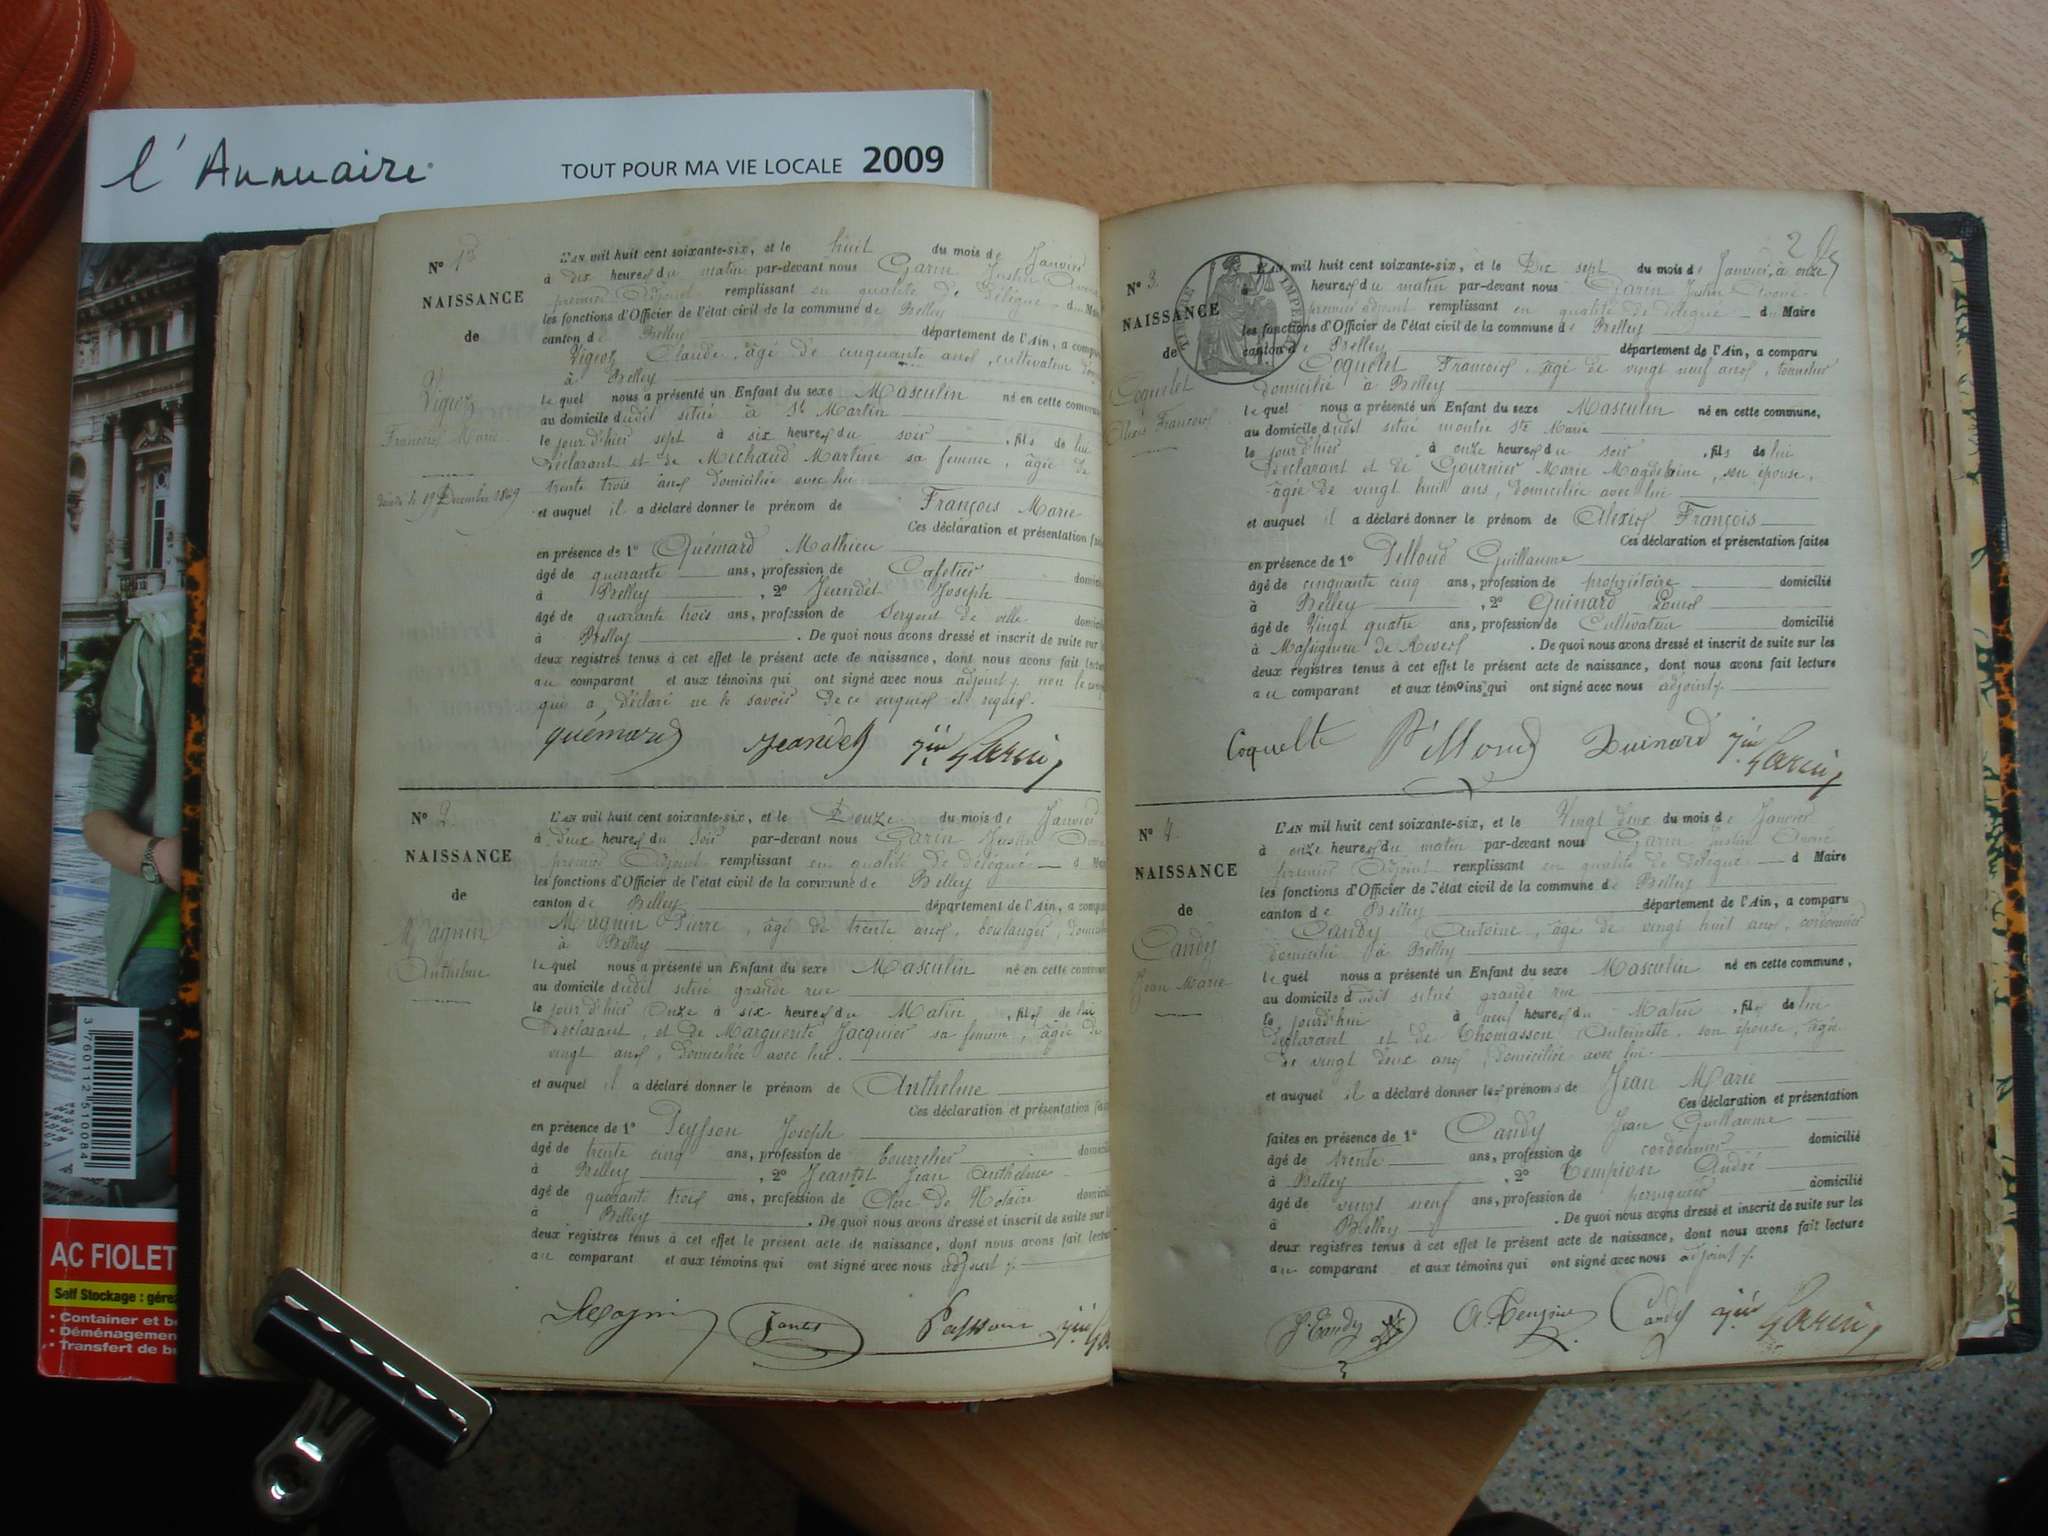 l'Annuaire
TOUT POUR MA VIE LOCALE 2009
AC FIOLET
Self Stockage : gére
• Container et b
• Déménagemen
• Transfert de b
3 760112 510084
Nº 1er
NAISSANCE
de
Vignoz
François Marie
décédé le 19 Décembre 1849
L'AN mil huit cent soixante-six, et le huit du mois de Janvier
à dix heures du matin par-devant nous Garin Justin
premier Adjoint remplissant en qualité de Délégué d Maire
les fonctions d'Officier de l'état civil de la commune de Belley
canton de Belley département de l'Ain, a comparu
Claude, âgé de cinquante ans, cultivateur
à Belley
le quel nous a présenté un Enfant du sexe Masculin né en cette commune,
au domicile dudit situé à St Martin
le jour d'hier sept à six heures du soir, fils de lui
Déclarant et de Michaud Martine sa femme, âgée de
trente trois ans domiciliée avec lui
et auquel il a déclaré donner le prénom de François Marie
Ces déclaration et présentation faites
en présence de 1º Quémard Mathieu
âgé de quarante ans, profession de Cafetier domicilié
à Belley, 2º Jeandet Joseph
âgé de quarante trois ans, profession de Sergent de ville domicilié
à Belley. De quoi nous avons dressé et inscrit de suite sur les
deux registres tenus à cet effet le présent acte de naissance, dont nous avons fait lecture
au comparant et aux témoins qui ont signé avec nous adjoint, non le
qui a déclaré ne le savoir de ce enquis et requis.
quémard Jeandet Garin
Nº 2
NAISSANCE
de
Magnin
Anthelme
L'AN mil huit cent soixante-six, et le Douze du mois de Janvier
à deux heures du soir par-devant nous Garin Justin
premier Adjoint remplissant en qualité de délégué d Maire
les fonctions d'Officier de l'état civil de la commune de Belley
canton de Belley département de l'Ain, a comparu
Magnin Pierre, âgé de trente ans, boulanger, domicilié
à Belley
le quel nous a présenté un Enfant du sexe Masculin né en cette commune
au domicile dudit situé grande rue
le jour d'hier onze à six heures du Matin, fils de lui
Déclarant, et de Marguerite Jacquier sa femme, âgée de
vingt ans, domiciliée avec lui.
et auquel il a déclaré donner le prénom de Anthelme
Ces déclaration et présentation faites
en présence de 1º Peysson Joseph
âgé de trente cinq ans, profession de bourrelier domicilié
à Belley, 2º Jeantet Jean Anthelme
âgé de quarante trois ans, profession de Clerc de Notaire domicilié
à Belley. De quoi nous avons dressé et inscrit de suite sur les
deux registres tenus à cet effet le présent acte de naissance, dont nous avons fait lecture
au comparant et aux témoins qui ont signé avec nous adjoint
Magnin
2
TIMBRE IMPERIAL
Nº 3.
NAISSANCE
de
Coquelet
Alexis François
L'AN mil huit cent soixante-six, et le Dix sept du mois de Janvier, à onze
heures du matin par-devant nous Garin Justin André
premier adjoint remplissant en qualité de délégué d Maire
les fonctions d'Officier de l'état civil de la commune de Belley
canton de Belley département de l'Ain, a comparu
Coquelet François, âgé de vingt neuf ans,
domicilié à Belley
le quel nous a présenté un Enfant du sexe Masculin né en cette commune,
au domicile dudit situé montée Ste Marie
le jour d'hier à onze heures du soir, fils de lui
Déclarant et de Gournier Marie Magdelaine, son épouse,
âgée de vingt huit ans, domiciliée avec lui
et auquel il a déclaré donner le prénom de Alexis François
Ces déclaration et présentation faites
en présence de 1º Pilloud Guillaume
âgé de cinquante cinq ans, profession de propriétaire domicilié
à Belley, 2º Quinard Louis
âgé de Vingt quatre ans, profession de Cultivateur domicilié
à Massignieu de Rives. De quoi nous avons dressé et inscrit de suite sur les
deux registres tenus à cet effet le présent acte de naissance, dont nous avons fait lecture
au comparant et aux témoins qui ont signé avec nous adjoint
Coquelet Pilloud Quinard Garin
Nº 4.
NAISSANCE
de
Candy
Jean Marie
L'AN mil huit cent soixante-six, et le Vingt deux du mois de Janvier
à onze heures du matin par-devant nous Garin Justin André
premier Adjoint remplissant en qualité de délégué d Maire
les fonctions d'Officier de l'état civil de la commune de Belley
canton de Belley département de l'Ain, a comparu
Candy Antoine, âgé de vingt huit ans, cordonnier
domicilié à Belley
le quel nous a présenté un Enfant du sexe Masculin né en cette commune,
au domicile dudit situé grande rue
le jourd'hui à neuf heures du Matin, fils de lui
déclarant et de Thomasson Antoinette son épouse, âgée
de vingt deux ans, domiciliée avec lui.
et auquel il a déclaré donner les prénoms de Jean Marie
Ces déclaration et présentation
faites en présence de 1º Candy Jean Guillaume
âgé de trente ans, profession de cordonnier domicilié
à Belley, 2º Tempion André
âgé de vingt neuf ans, profession de perruquier domicilié
à Belley. De quoi nous avons dressé et inscrit de suite sur les
deux registres tenus à cet effet le présent acte de naissance, dont nous avons fait lecture
au comparant et aux témoins qui ont signé avec nous adjoint
J. Candy Candy Garin